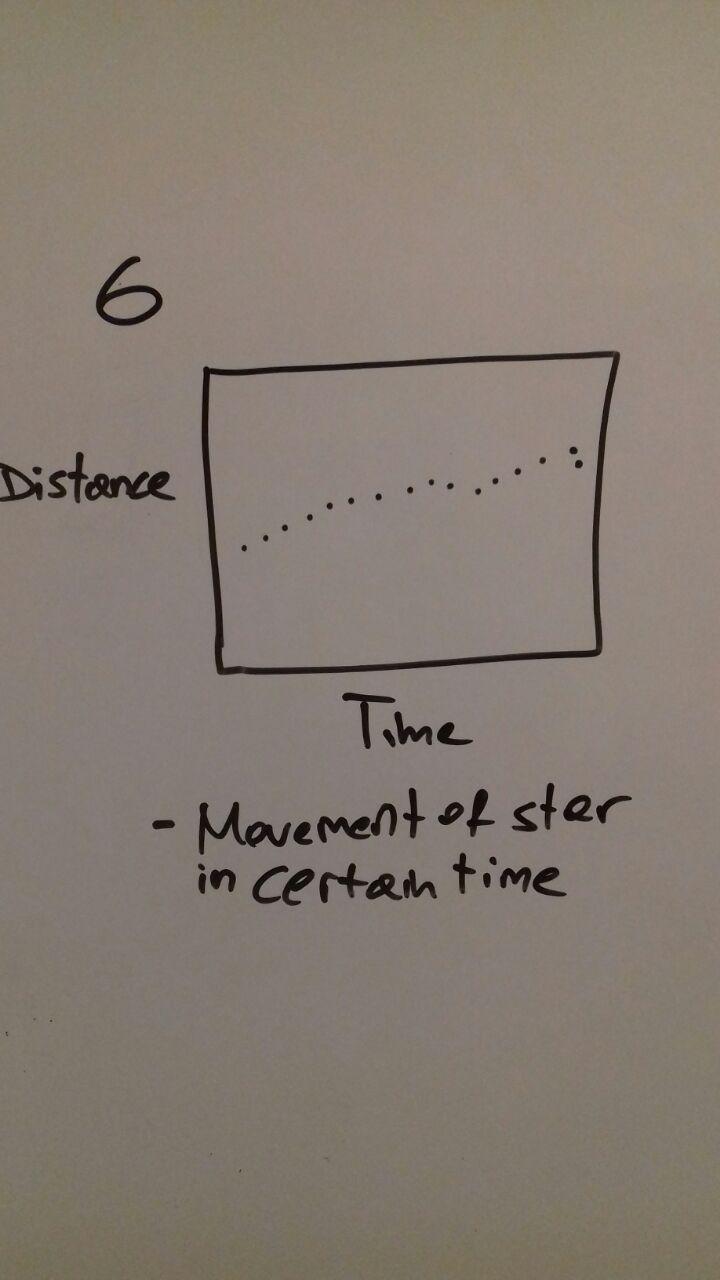 6
Distance
Time
- Movement of star
in certain time